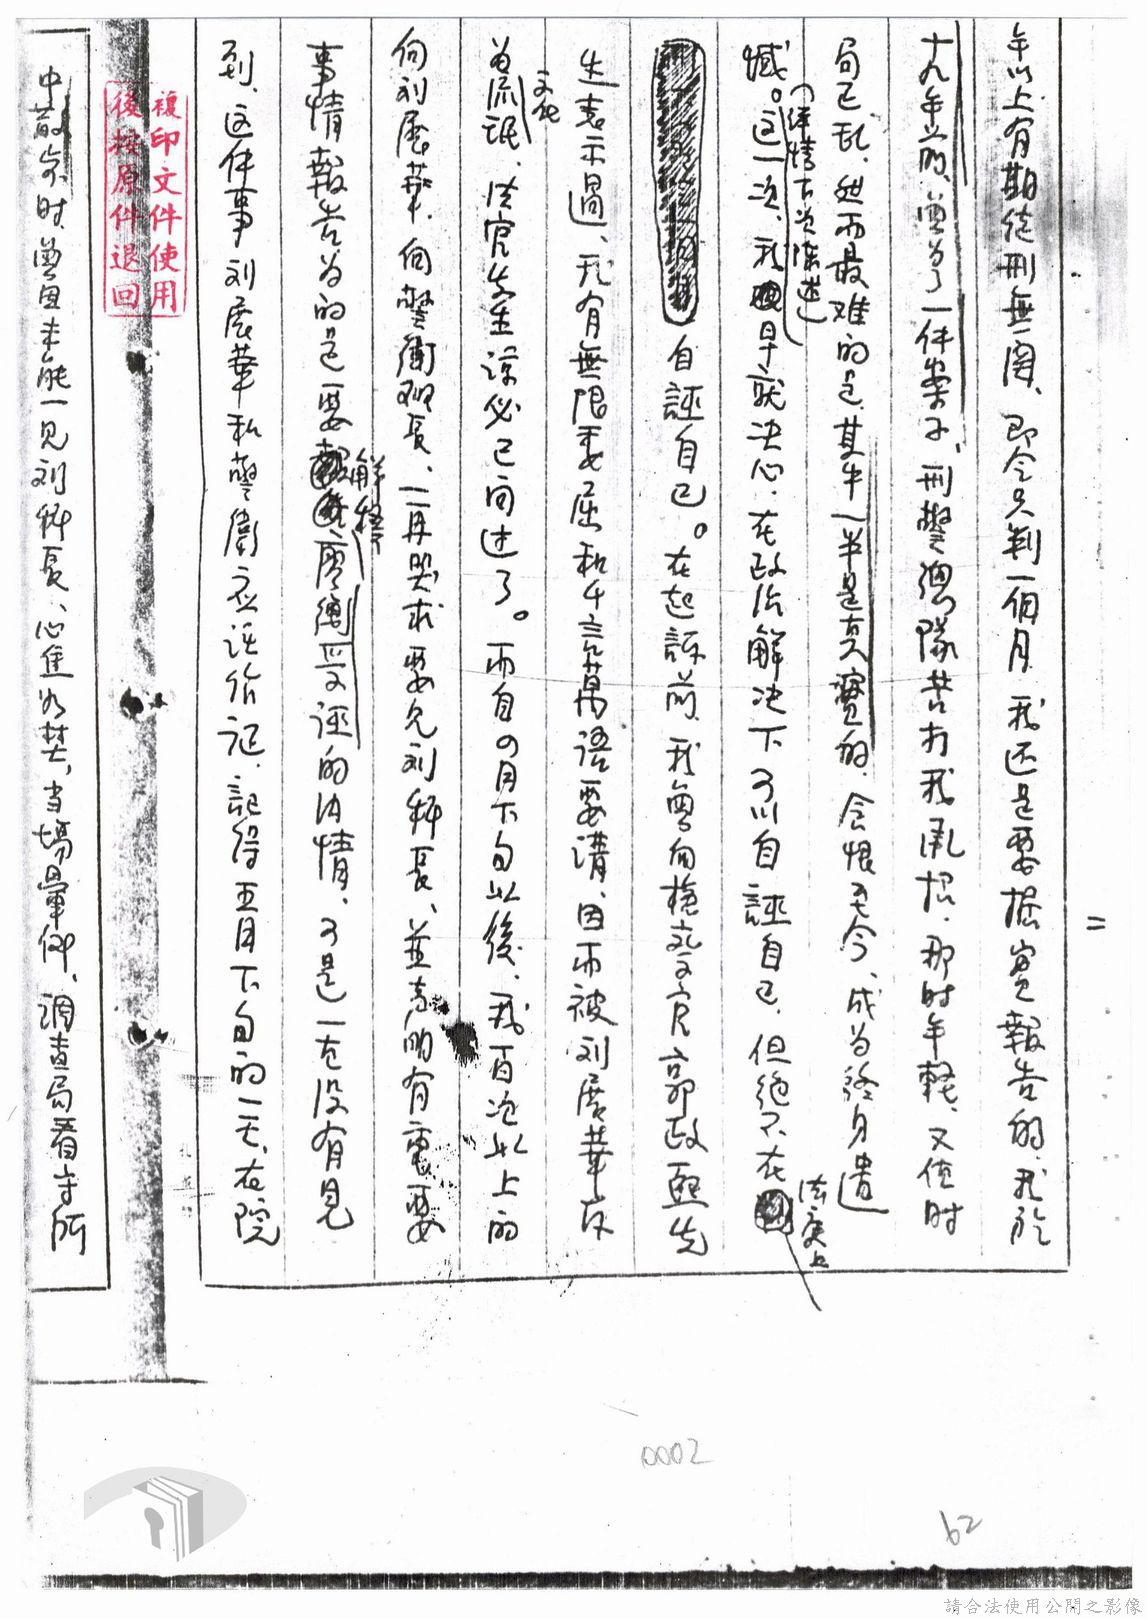 二
年以上有期徒刑無關、即令只判一個月、我还是要据实報告的、我於
十九年前、曾為了一件案子、刑警總隊苦打我亂招、那时年輕、又值时
局已乱、然而最难的是、其中一半是真实的、含恨至今、成為終身遺
憾。(詳情下次陳述)這一次、我早就决心、在政治解决下可以自誣自己、但絶不在法庭上
自誣自己。在起訴前、我曾向檢察官郭政熙先
生表示過、我有無限委屈和千言萬語要講、因而被刘展華斥
為文化流氓、法官先生諒必已闻述了。而自四月下旬以後、我百次以上的
向刘展華、向警衛班長、一再哭求要見刘科長、並言明有重要
事情報告為的是要解釋廖、受誣的内情、可是一直没有見
到、这件事刘展華和警衛应該作証、記得五月下旬的一天、在院
中散步时、曾因未能一見刘科長、心焦如焚、当場暈倒、調查局看守所
複印文件使用
後按原件退回
0002
62
請合法使用公開之影像